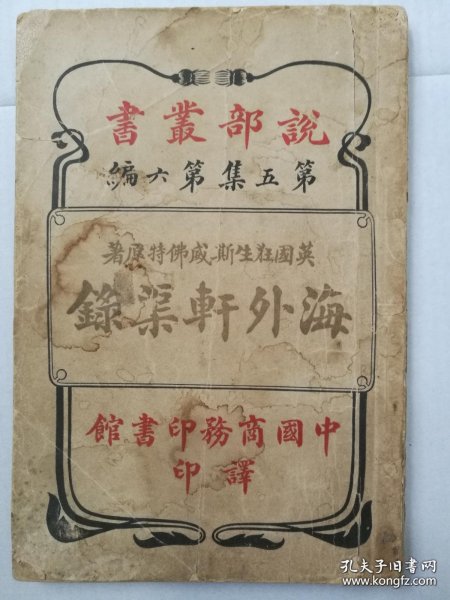 說部叢書
第五集第六編
英國狂生斯威佛特原著
海外軒渠錄
中國商務印書館
譯印
孔夫子旧书网
www.kongfz.com